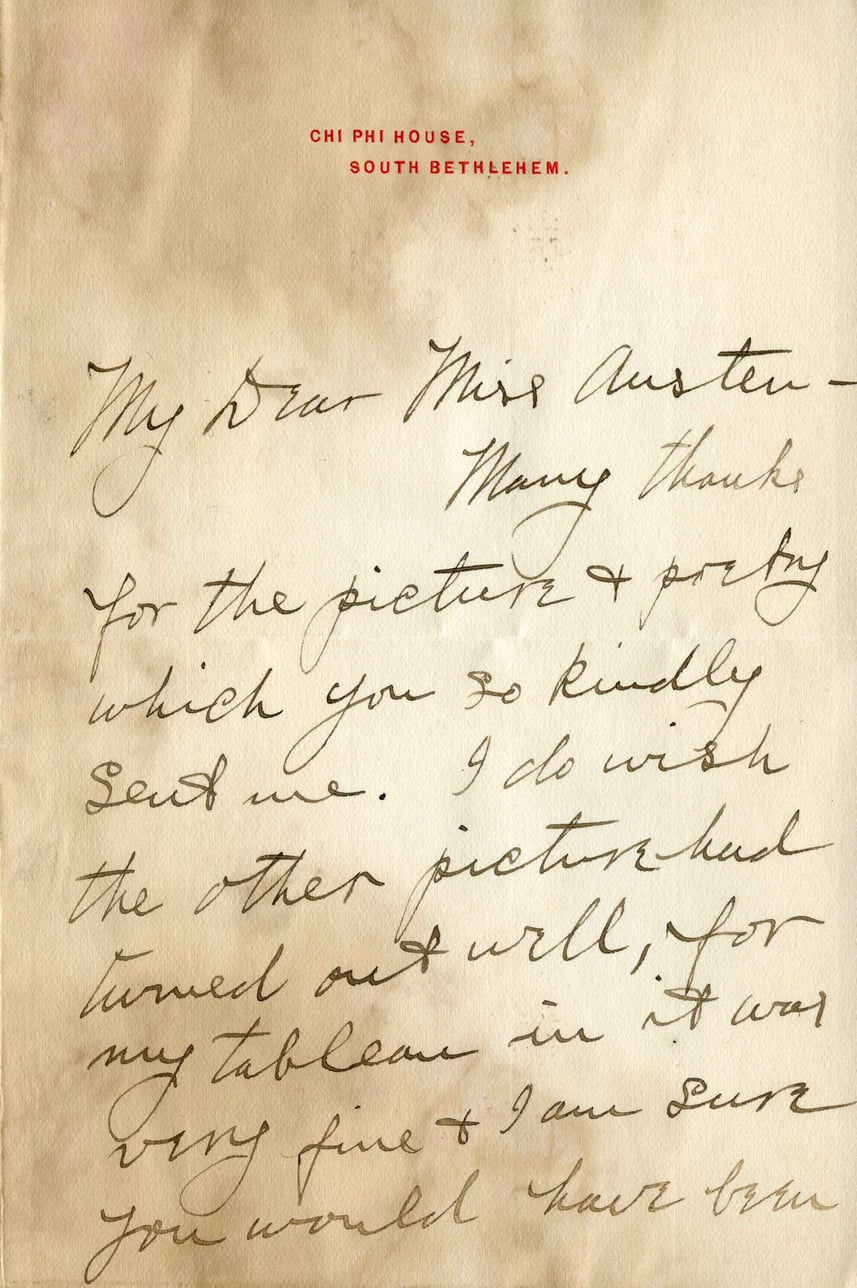 CHI PHI HOUSE,
SOUTH BETHLEHEM.
My Dear Miss Austen -
Many thanks
for the picture & poetry
which you so kindly
sent me. I do wish
the other picture had
turned out well, for
my tableau in it was
very fine & I am sure
you would have been